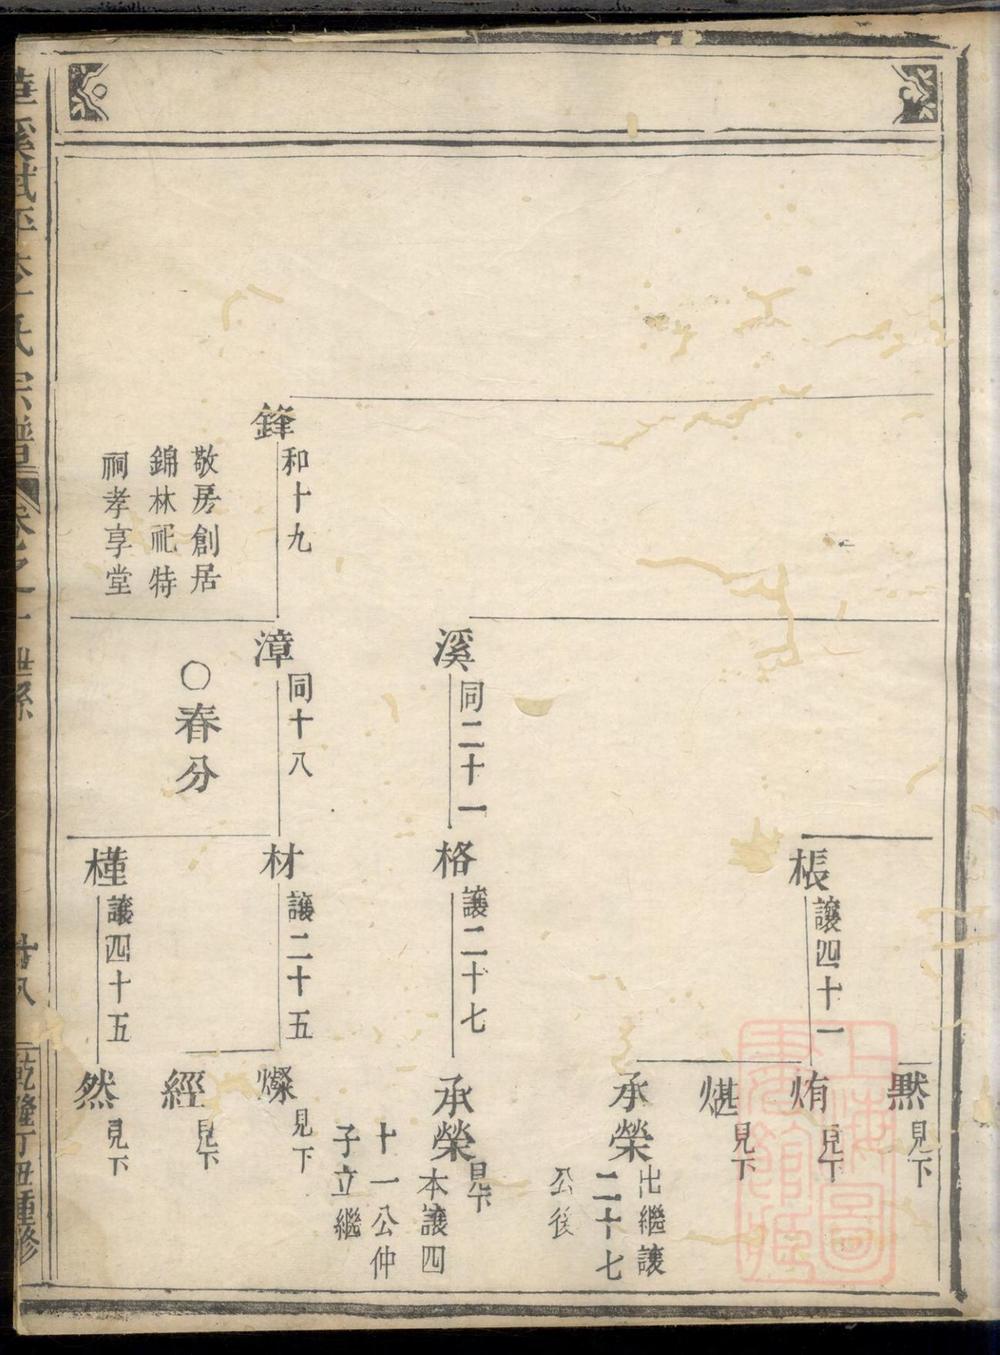 鋒
和十九
敬房創居
錦林祀特
祠孝享堂
溪
同二十一
漳
同十八
○春分
棖
讓四十一
格
讓二十七
材
讓二十五
槿
讓四十五
黙
見下
烠
見下
煁
見下
承榮
出繼讓
二十七
公後
承榮
見下
本讓四
十一公仲
子立繼
燦
見下
經
見下
然
見下
李氏宗譜
卷之一
世系
廿八
乾隆丁丑重修
上海圖書館藏